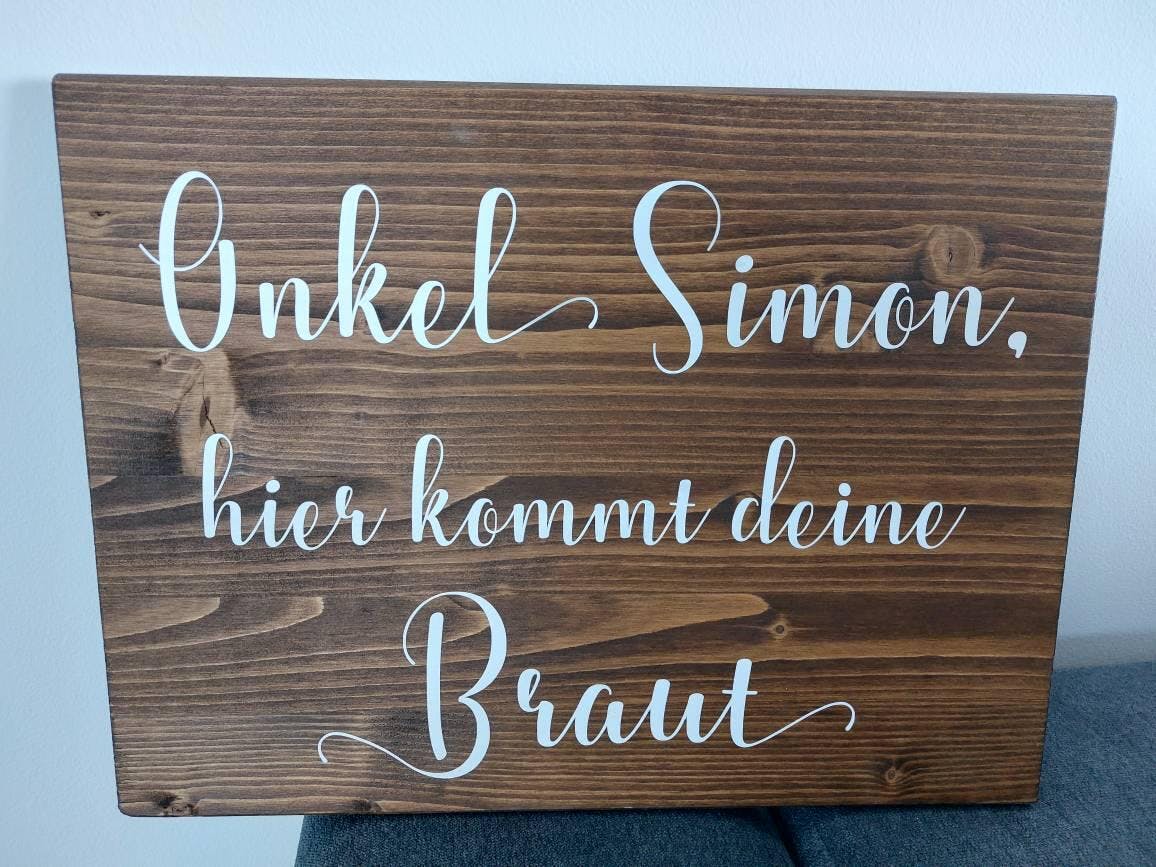 Onkel Simon,
hier kommt deine
Braut